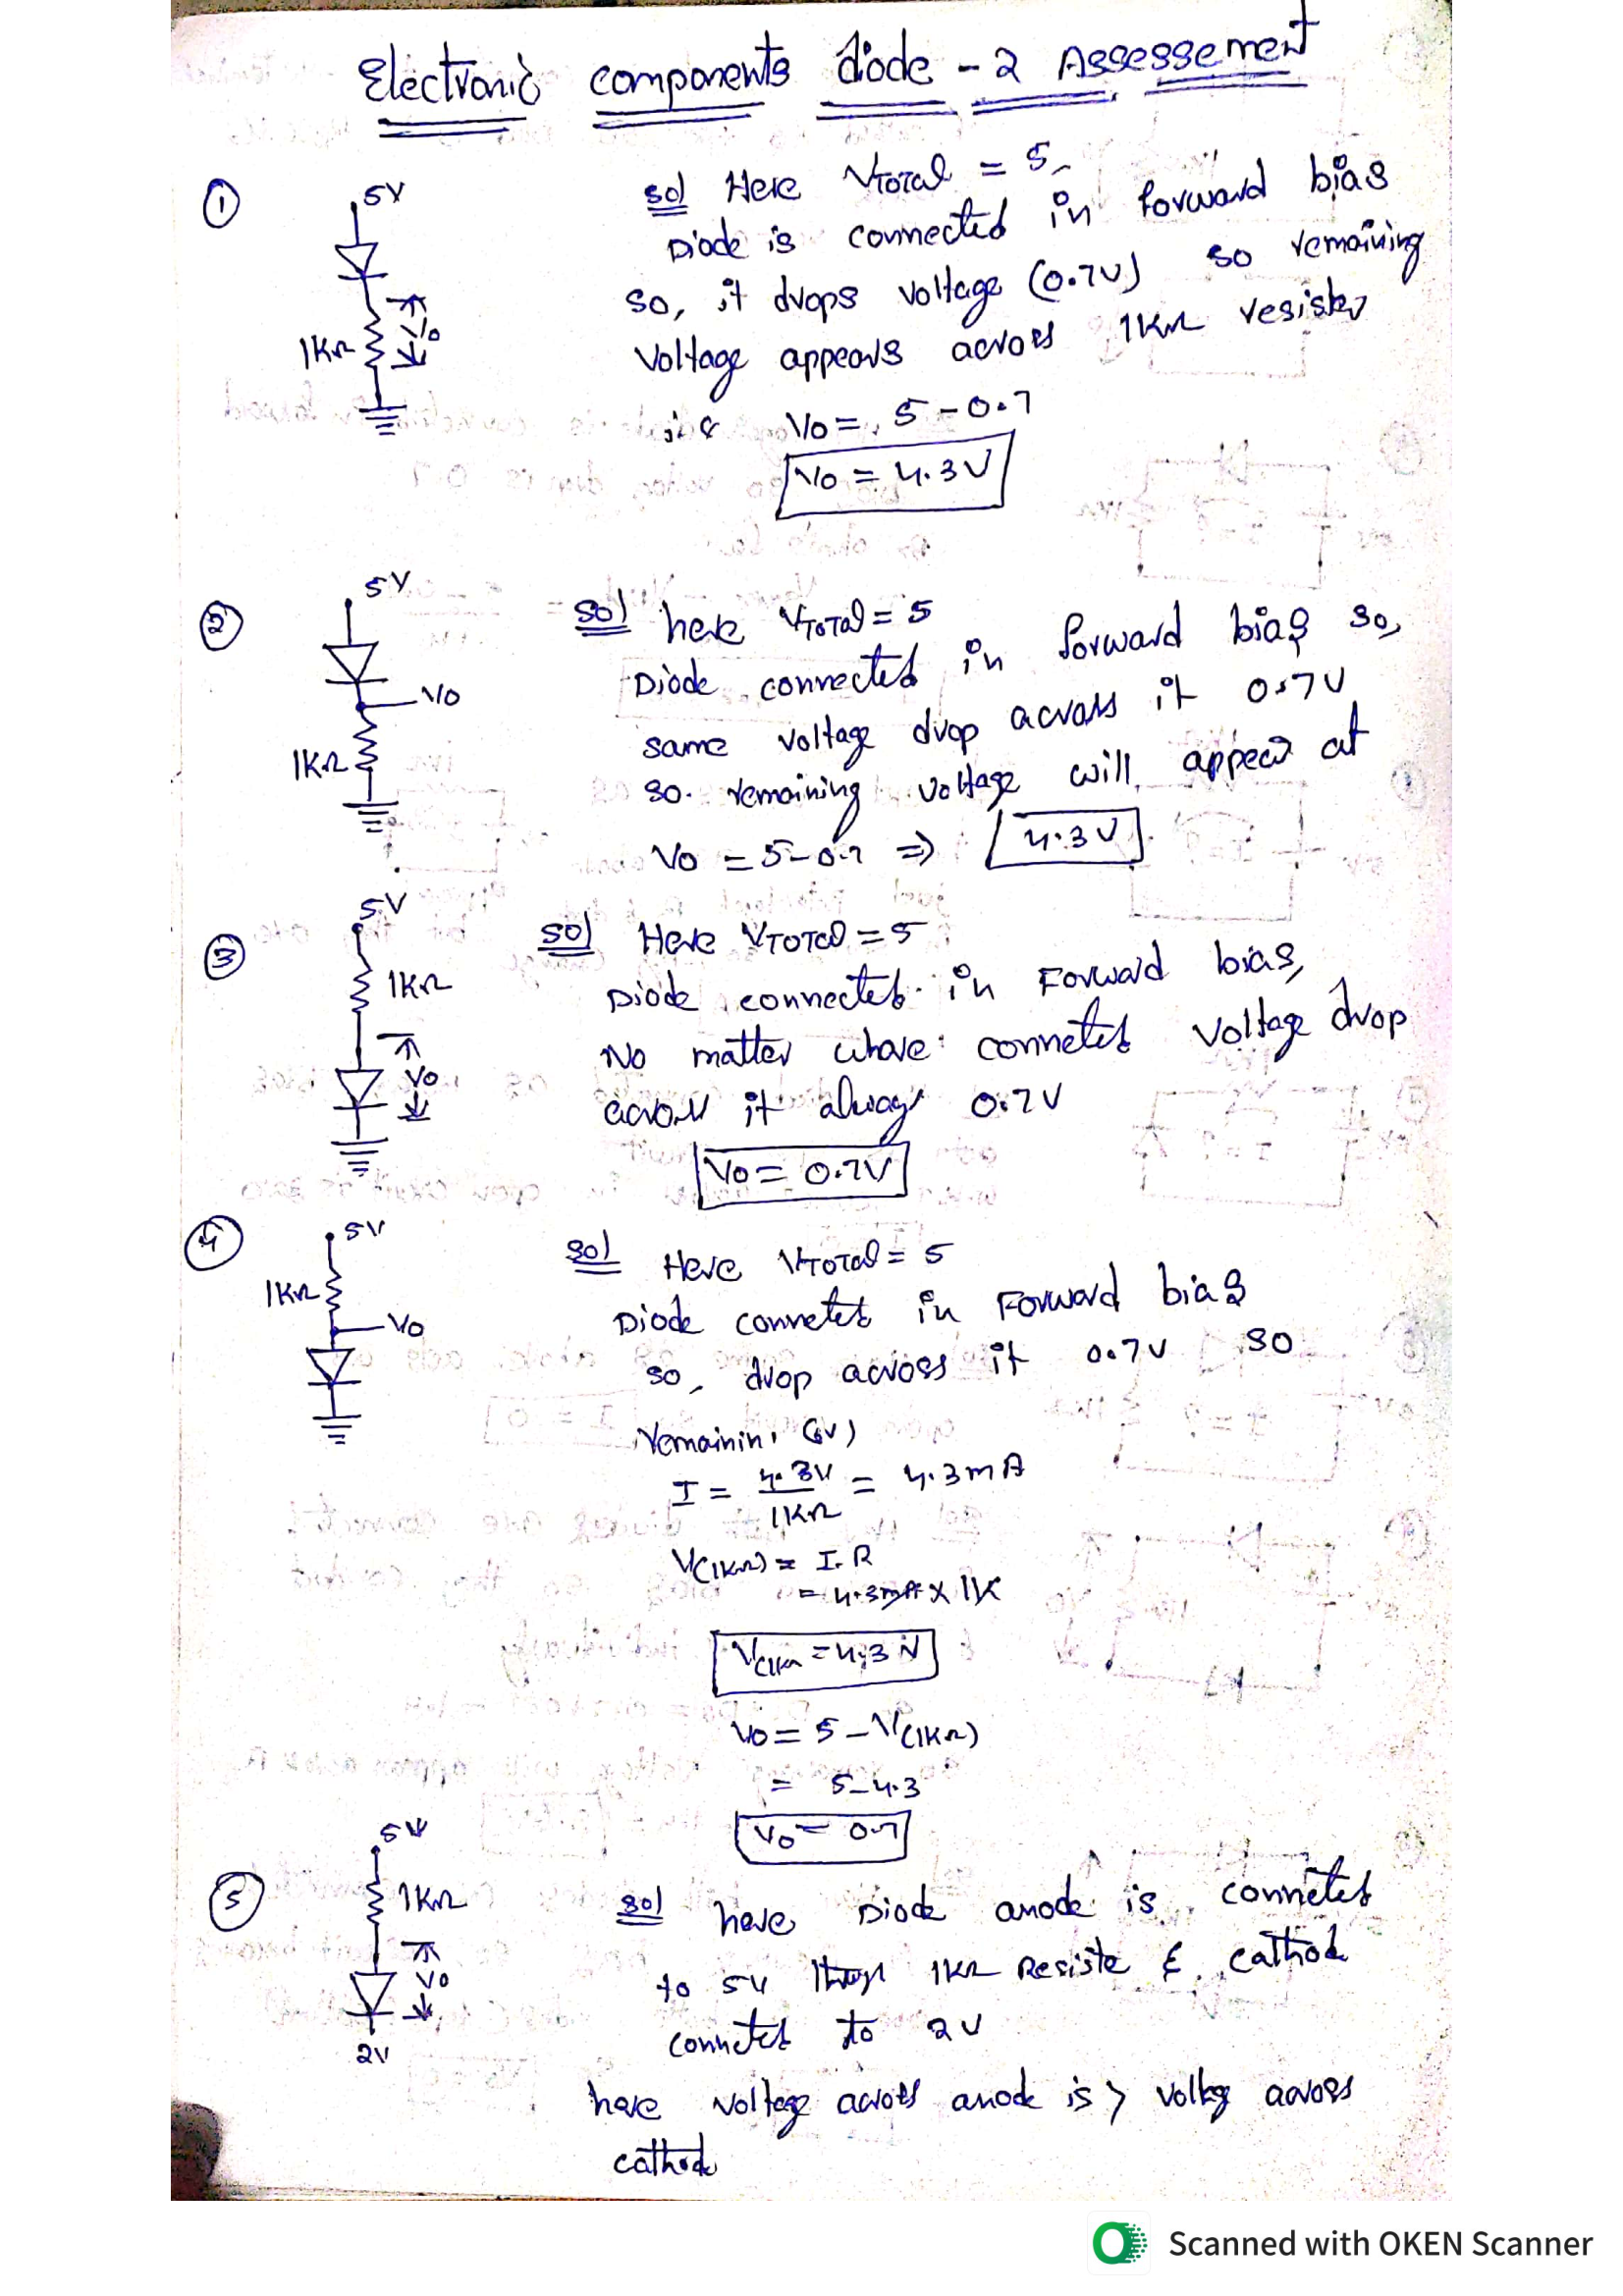 Electronic components diode - 2 Assessement
① 5V
1KΩ Vo
Sol Here VTotal = 5
Diode is connected in forward bias
so, it drops voltage (0.7V) so remaining
Voltage appears across 1KΩ resister
i.e Vo = 5 - 0.7
Vo = 4.3V
② 5V
Vo
1KΩ
Sol here VTotal = 5
Diode connected in forward bias so,
same voltage drop across it 0.7V
so remaining voltage will appear at
Vo = 5 - 0.7 ⇒ 4.3V
③ 5V
1KΩ
Vo
Sol Here VTotal = 5
Diode connected in Forward bias,
No matter where connected voltage drop
across it always 0.7V
Vo = 0.7V
④ 5V
1KΩ
Vo
Sol Here VTotal = 5
Diode connected in Forward bias
so, drop across it 0.7V so
I = 4.3V / 1KΩ = 4.3mA
V(1KΩ) = I.R
= 4.3mA x 1K
V(1KΩ = 4.3V
Vo = 5 - V(1KΩ)
= 5 - 4.3
Vo = 0.7
⑤ 5V
1KΩ
Vo
2V
Sol here Diode anode is connected
to 5V 1KΩ Resiste & cathod
connected to 2V
here voltage across anode is > voltag across
cathode
Scanned with OKEN Scanner